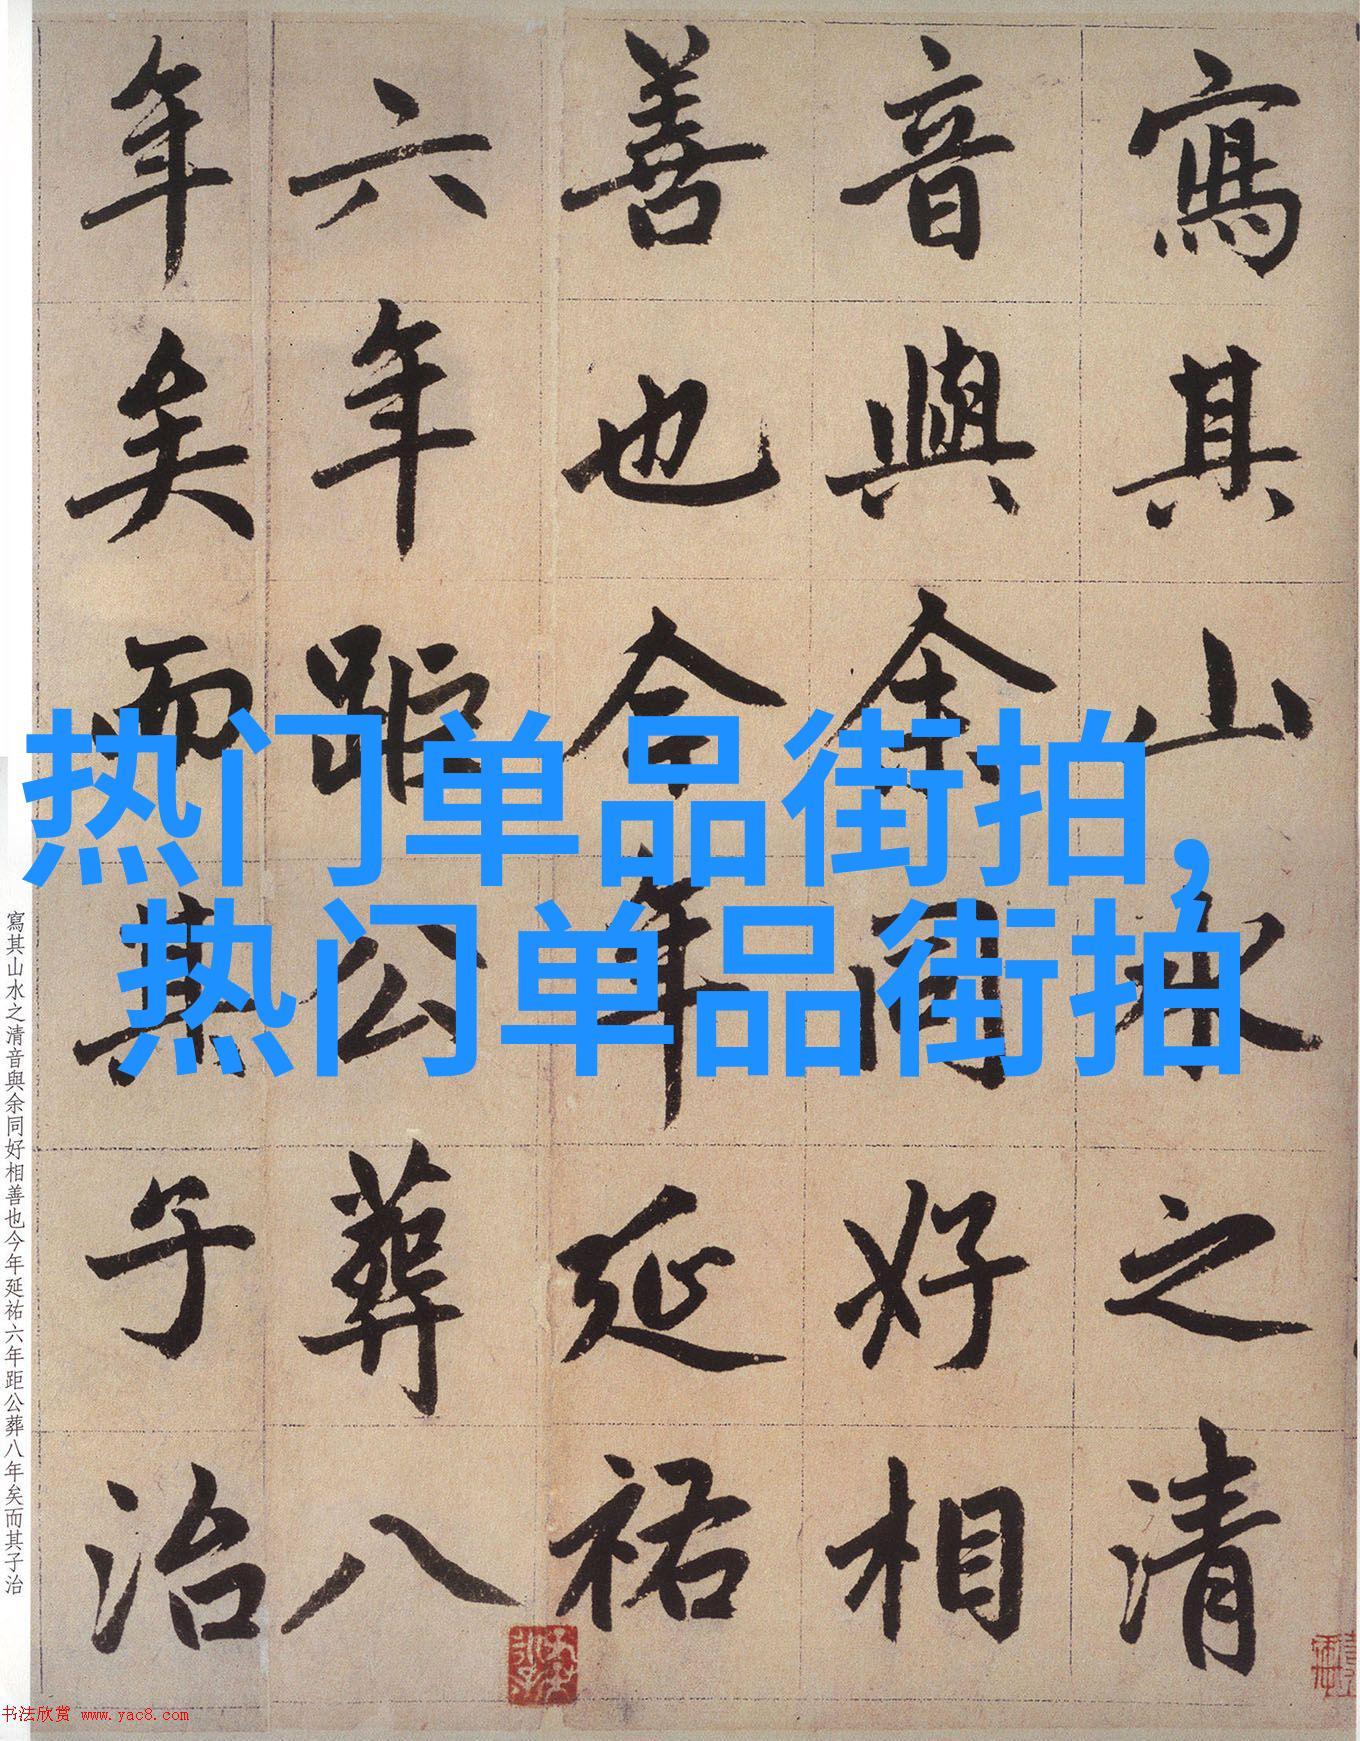 寫其山水之清
音與余同好相
善也今年延祐
六年距公葬八
年矣而其子治
热门单品街拍,
热门单品街拍
寫其山水之清音與余同好相善也今年延祐六年距公葬八年矣而其子治
书法欣赏 www.yac8.com